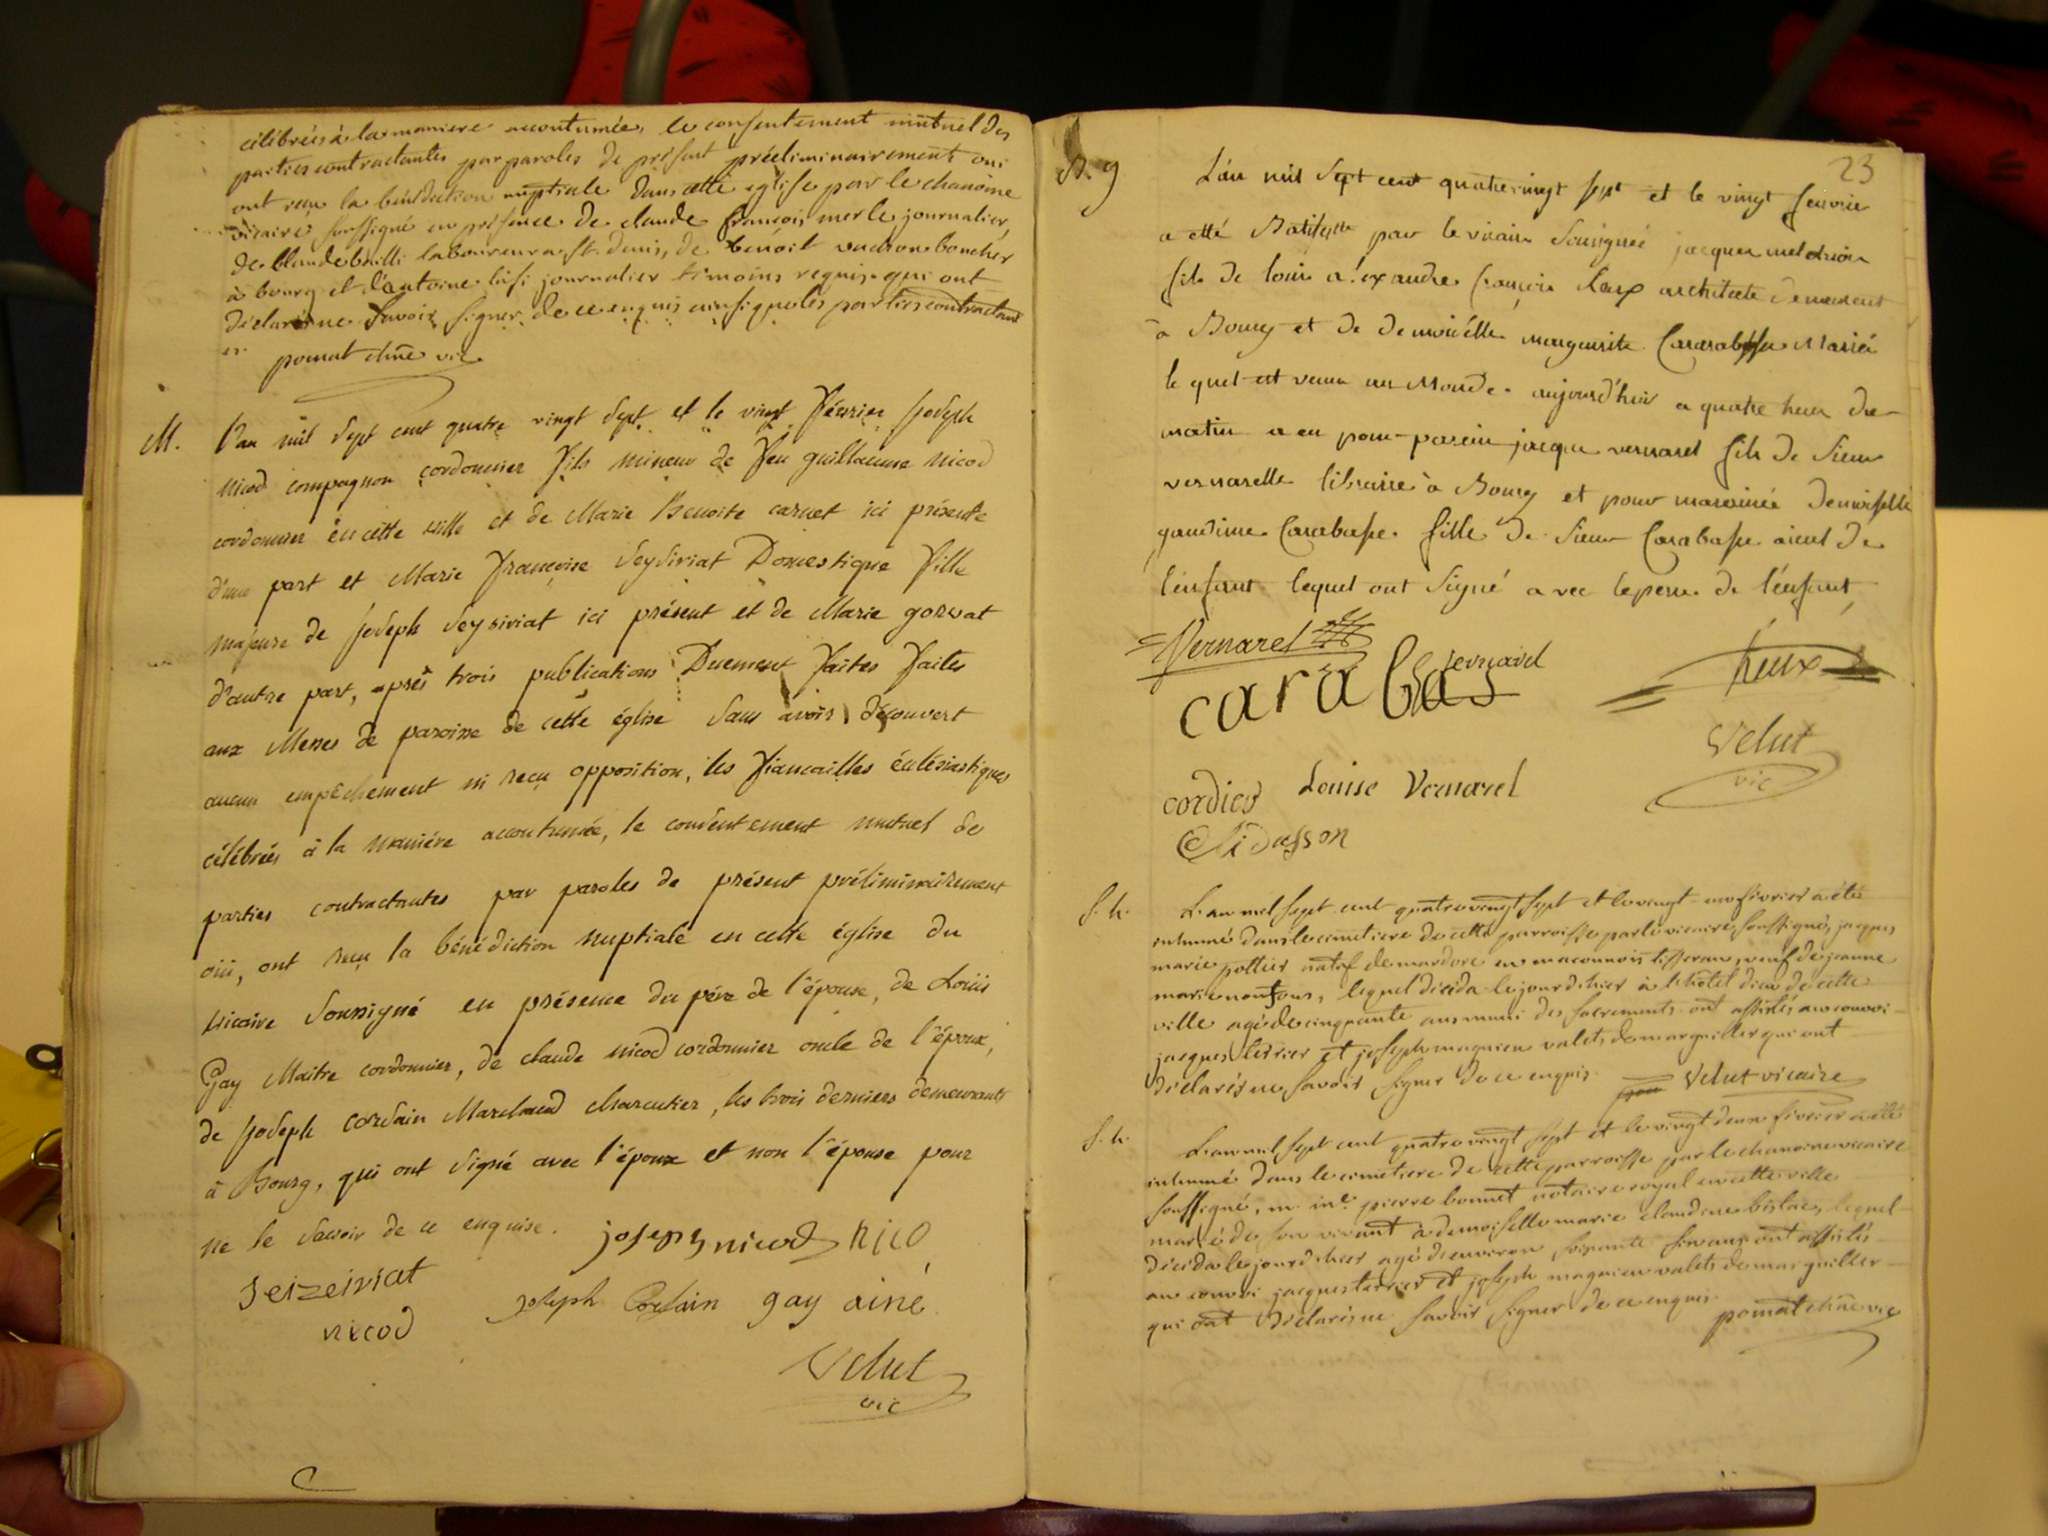 célébrées à la maniere accoutumée, le consentement mutuel des
parties contractantes par paroles de présent préeliminairement oui
ont recu la bénédiction nuptiale dans cette église par le chanoine
vicaire soussigné en présence de claude françois merle journalier,
de claude bailli laboureur a st. denis, de benoit boucher
à bourg et d'antoine journalier témoins requis qui ont
déclaré ne savoir signer de ce enquis ainsi que les parties contractant
es. pomat chne vic
M. l'an mil sept cent quatre vingt sept et le vingt Février joseph
nicod compagnon cordonnier fils mineur de feu guillaume nicod
cordonnier en cette ville et de Marie Benoite carnet ici présente
d'une part et Marie françoise seysiriat Domestique fille
majeure de joseph seysiriat ici présent et de Marie gorvat
d'autre part, après trois publications Duement faites faites
aux Messes de paroisse de cette église sans avoir découvert
aucun empêchement ni reçu opposition, les fiancailles éclésiastiques
célébrées à la manière accoutumée, le consentement mutuel de
parties contractantes par paroles de présent préliminairement
oüi, ont reçu la bénédiction nuptiale en cette église du
vicaire soussigné en présence du père de l'épouse, de Loüis
Gay Maitre cordonnier, de claude nicod cordonnier oncle de l'époux,
de joseph cordain Marchand charcutier, les trois derniers demeurants
à Bourg, qui ont signé avec l'époux et non l'épouse pour
ne le savoir de ce enquise. joseph nicod nico
seizeiriat
joseph Cordain gay ainé
nicod
Velut
vic
23
B. 9 L'an mil sept cent quatrevingt sept et le vingt fevrie
a etté Batisé par le vicaire sousigné jacque
fils de louis alexandre françois heux architecte demeurent
à Bourg et de demoiselle marguerite Carabasse Mariés
le quel est venu au Monde aujourd'hui a quatre heur du
matin a eu pour parein jacque vernarel fils de sieur
vernarelle libraire à Bourg et pour maraine demoiselle
gaudime Carabasse fille de sieur Carabasse aieul de
l'enfant lequel ont signé avec le pere de l'enfant
Vernarel
vernarel
carabas
heux
Velut
vic
cordier Louise Vernarel
Midasson
S. h. L'an mil sept cent quatrevingt sept et le vingt un février a été
inhumé dans le cimetiere de cette parroisse par le vicaire soussigné, jacques
marie pottier natif de mardore en maconnois tisseran, veuf de jeanne
marie, lequel décéda le jour d'hier à l'hôtel dieu de cette
ville agé de cinquante ans muni des sacrements ont assistés au convoi
jacques terrier et joseph magnien valets de marguiller qui ont
déclarés ne savoir signer de ce enquis. Velut vicaire
S. h. L'an mil sept cent quatrevingt sept et le vingt deux février a été
inhumé dans le cimetiere de cette parroisse par le chanoine vicaire
soussigné, m. me. pierre bonnet notaire royal en cette ville
marié de son vivant à demoiselle marie claudine, lequel
décéda le jour d'hier agé d'environ soixante ans ont assistés
au convoi jacques terrier et joseph magnien valets de marguiller
qui ont déclarés ne savoir signer de ce enquis. pomat chne vic